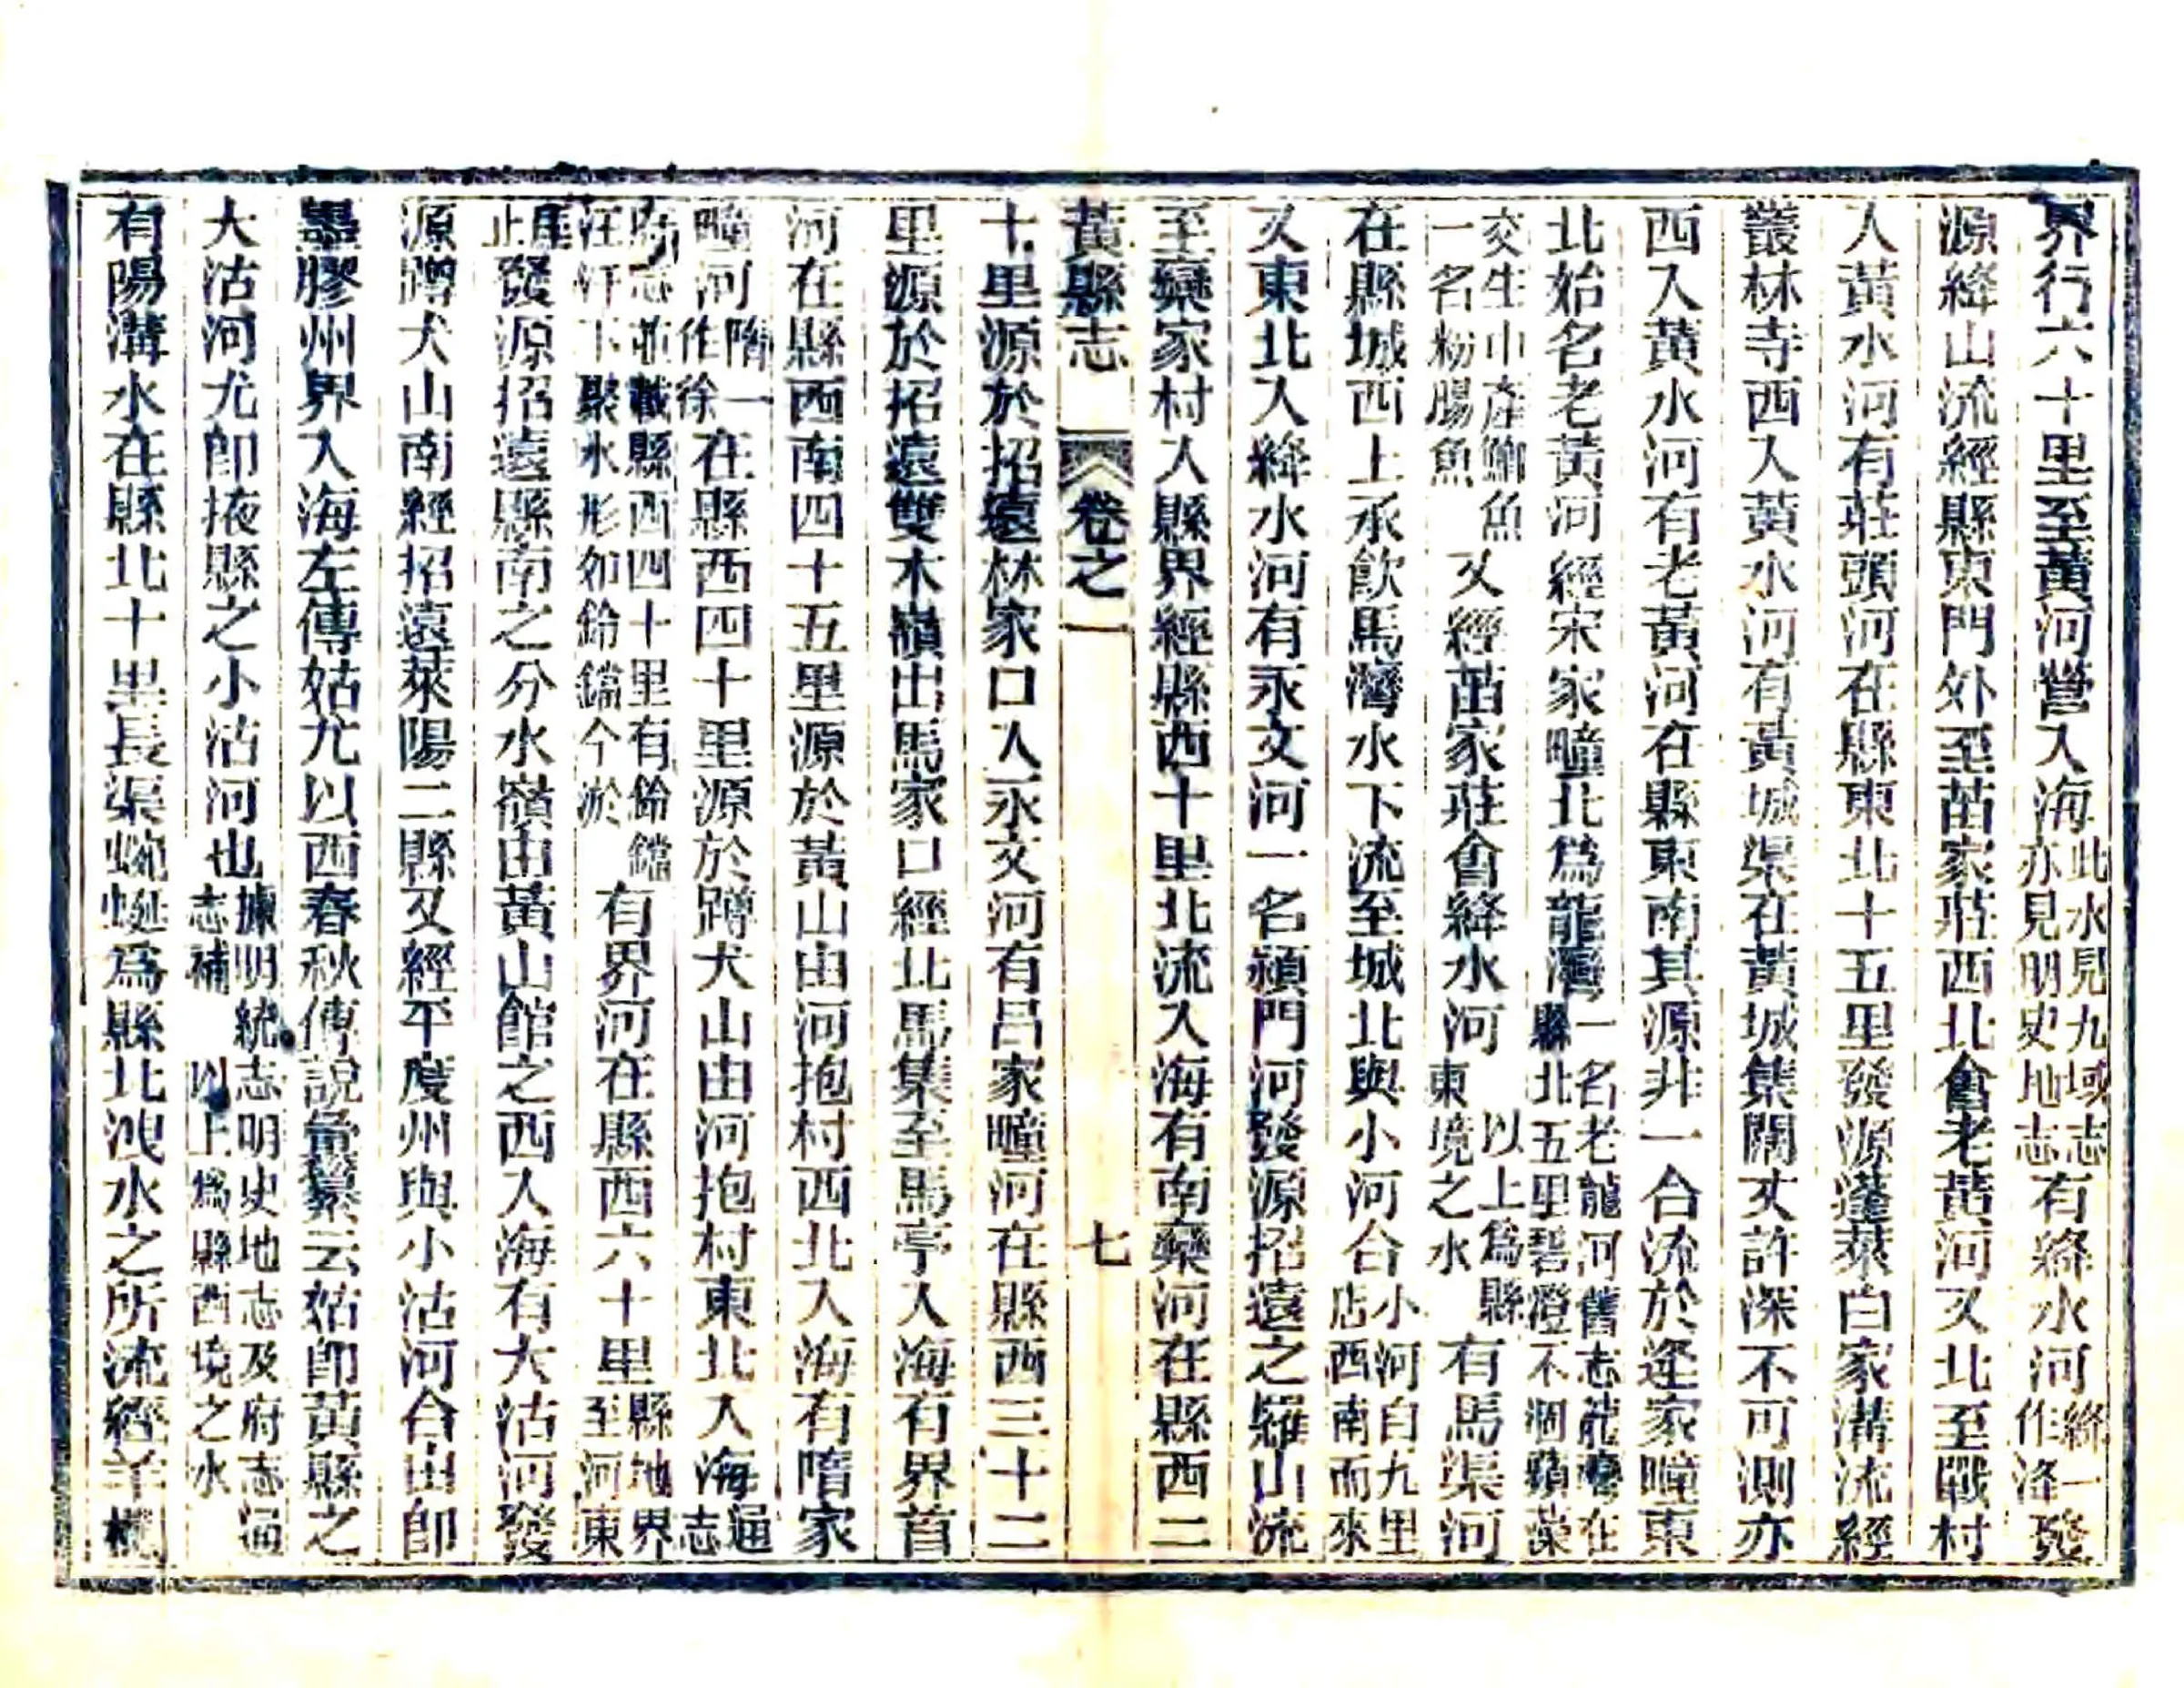 界行六十里至黃河營入海此水見九域志亦見明史地志有絳水河絳一作洚發
源絳山流經縣東門外至苗家莊西北會老黃河又北至戰村
入黃水河有莊頭河在縣東北十五里發源蓬萊白家溝流經
叢林寺西入黃水河有黃城渠在黃城集闊丈許深不可測亦
西入黃水河有老黃河在縣東南其源非一合流於逄家疃東
北始名老黃河經宋家疃北爲龍灣一名老龍河舊志龍灣在縣北五里碧澄不涸蘋藻
交生中產鯽魚一名粉腸魚又經苗家莊會絳水河以上爲縣東境之水有馬渠河
在縣城西上承飲馬灣水下流至城北與小河合小河自九里店西南而來
又東北入絳水河有永文河一名潁門河發源招遠之羅山流
至欒家村入縣界經縣西十里北流入海有南欒河在縣西二
黃縣志 卷之一 七
十里源於招遠林家口入永文河有呂家疃河在縣西三十二
里源於招遠雙木嶺出馬家口經北馬集至馬亭入海有界首
河在縣西南四十五里源於黃山由河抱村西北入海有隋家
疃河隋一作徐在縣西四十里源於蹲犬山由河抱村東北入海通志
府志並載縣西四十里有鈴鐺汪汙下聚水形如鈴鐺今淤有界河在縣西六十里縣地界至河東
崖止發源招遠縣南之分水嶺由黃山館之西入海有大沽河發
源蹲犬山南經招遠萊陽二縣又經平度州與小沽河合由卽
墨膠州界入海左傳姑尤以西春秋傳說彙纂云姑卽黃縣之
大沽河尤卽掖縣之小沽河也據明統志明史地志及府志通志補以上爲縣西境之水
有陽溝水在縣北十里長渠蜿蜒爲縣北洩水之所流經羊欄